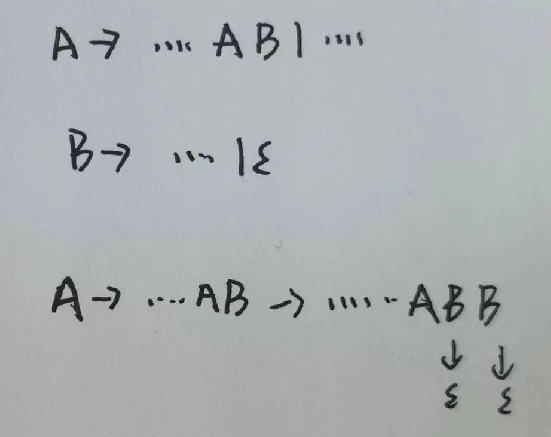 A → .... A B | ....
B → .... | ε
A → .... AB → ...... A B B
↓ ↓
ε ε